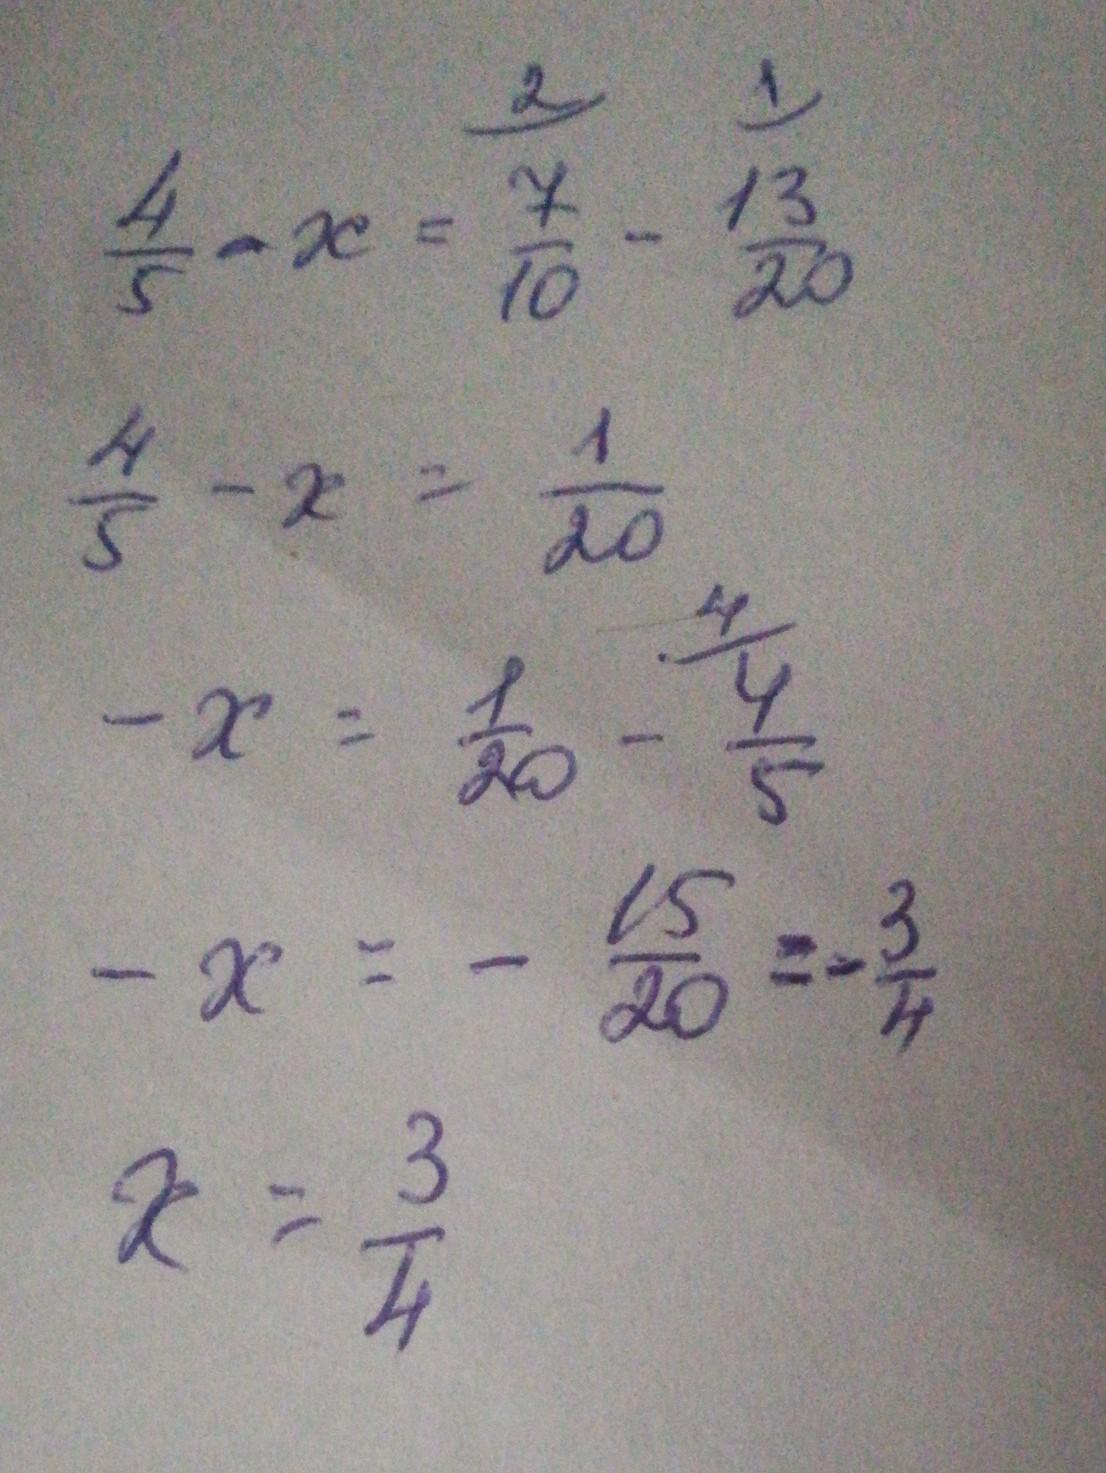 2 1
4/5 - x = 7/10 - 13/20
4/5 - x = 1/20
4
-x = 1/20 - 4/5
-x = - 15/20 = - 3/4
x = 3/4